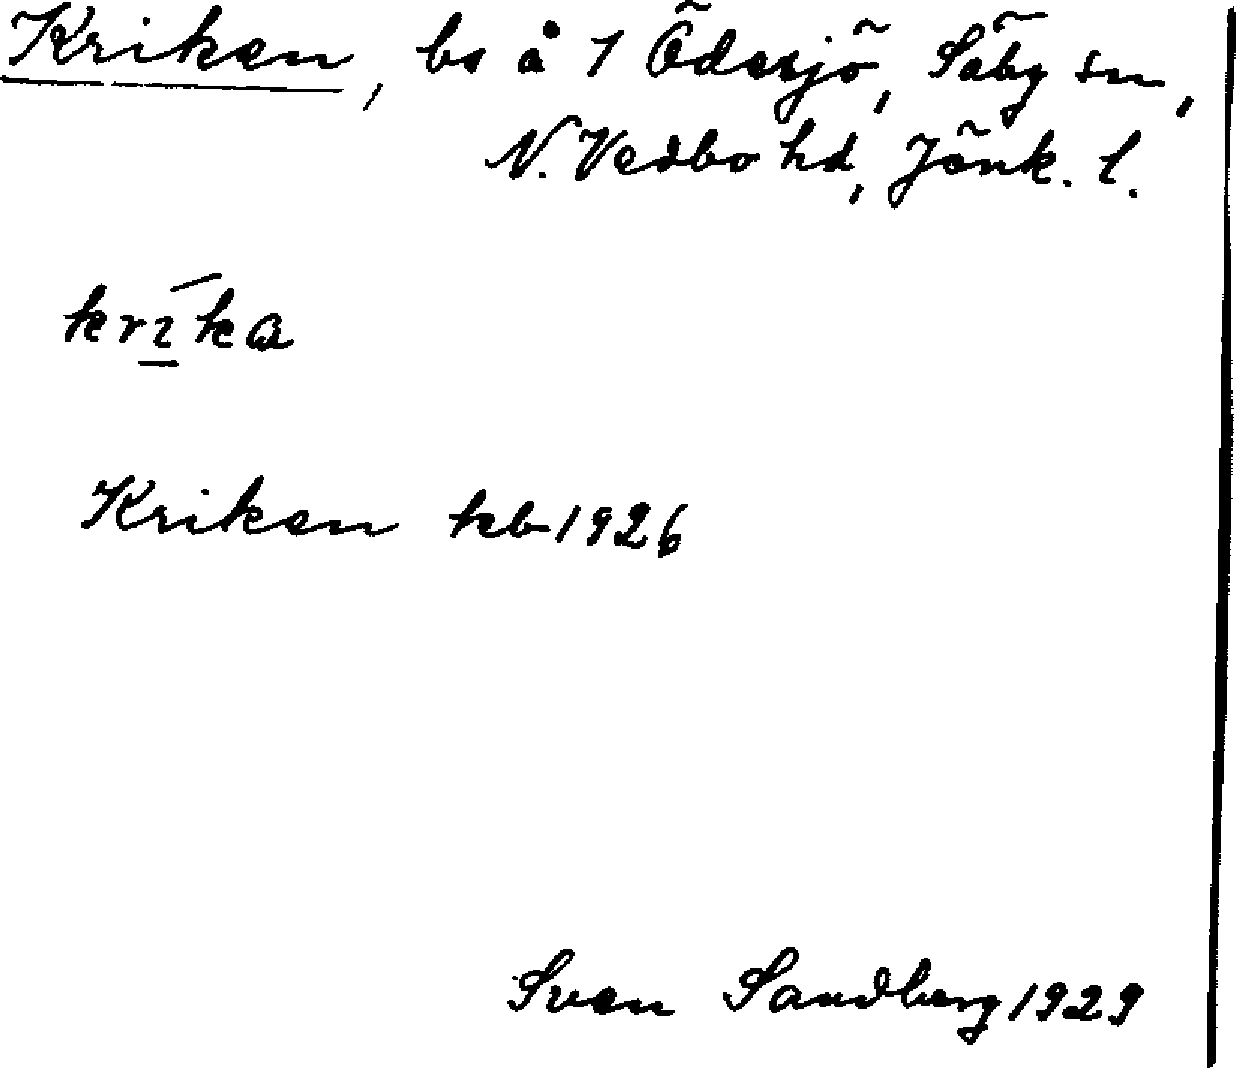 Kriken, bs å 1 Ödesjö, Säby sn,
N. Vedbo hd, Jönk. l.
krika
Kriken kb 1926
Sven Sandberg 1929